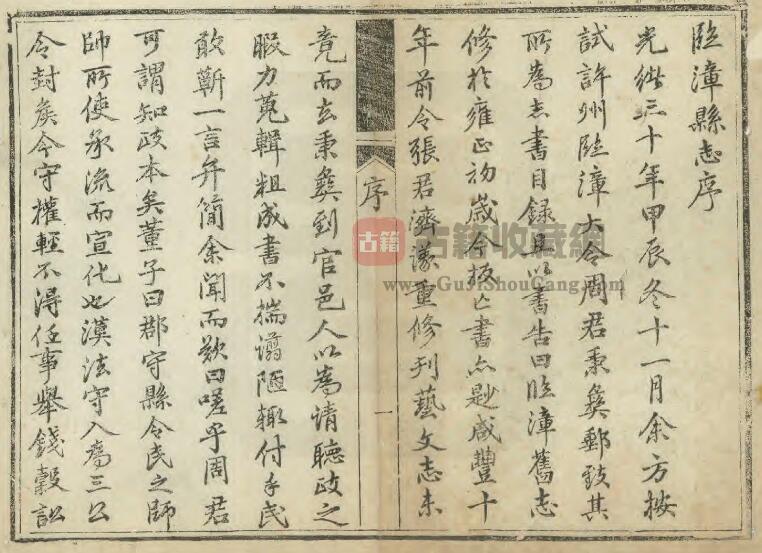 臨漳縣志序
光緒三十年甲辰冬十一月余方按
試許州臨漳大令周君秉彝郵致其
所為志書目録且以書告曰臨漳舊志
修於雍正初歲今板亡書亦尠咸豐十
年前令張君濟漾重修刊藝文志未
序
一
竟而去秉彝到官邑人以為請聽政之
暇力蒐輯粗成書不揣譾陋輒付手民
敢蘄一言弁簡余聞而歎曰嗟乎周君
可謂知政本矣董子曰郡守縣令民之師
帥所使承流而宣化也漢法守入為三公
令封矦今守權輕不得任事舉錢穀訟
古籍
古籍收藏網
www.GuJiShouCang.com